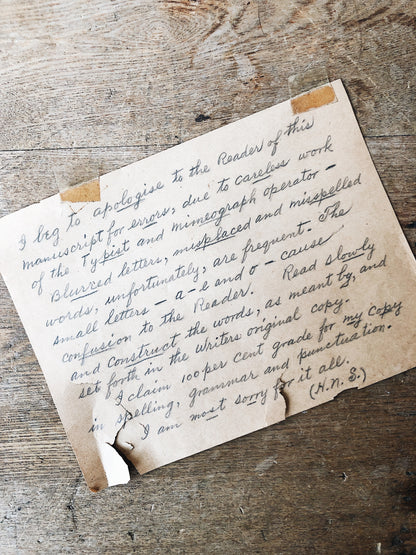 I beg to apologise to the Reader of this
manuscript for errors, due to careless work
of the Typist and mimeograph operator –
Blurred letters, misplaced and misspelled
words, unfortunately, are frequent. The
small letters – a – e and o – cause
confusion to the Reader. Read slowly
and construct the words, as meant by, and
set forth in the Writers original copy.
I claim 100 per cent grade for my copy
in spelling, grammar and punctuation.
I am most sorry for it all.
(H. N. S.)